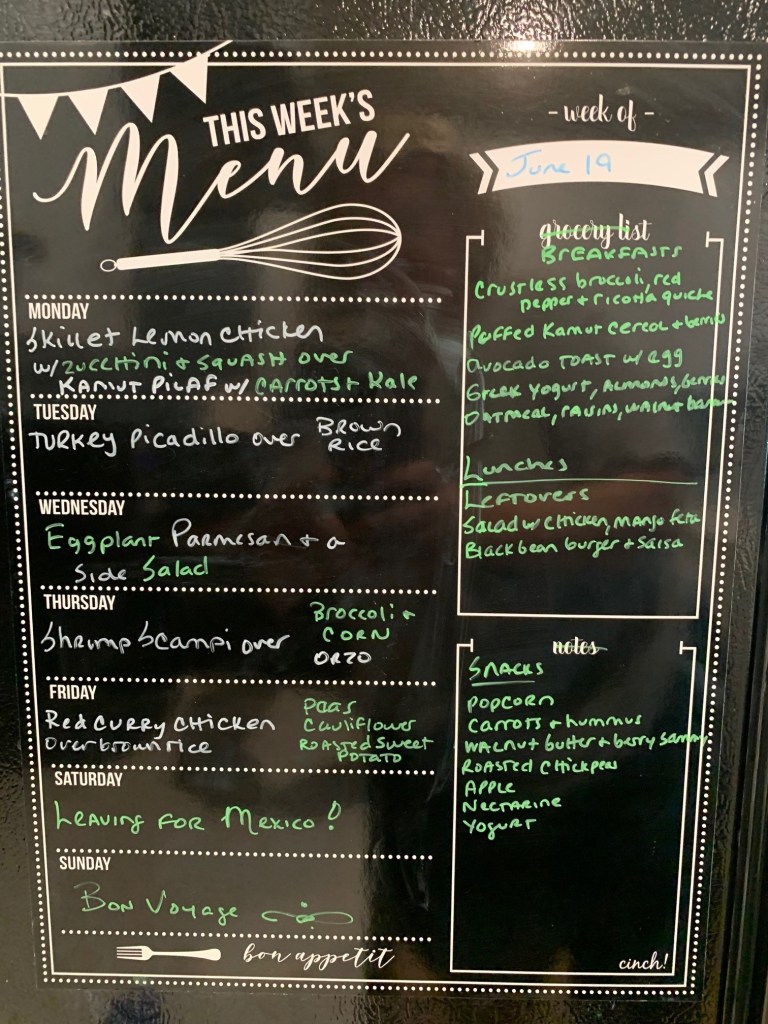 THIS WEEK'S
Menu
- week of -
June 19
MONDAY
Skillet Lemon Chicken
w/ zucchini + squash over
Kamut Pilaf w/ carrots + Kale
TUESDAY
Turkey Picadillo over Brown
Rice
WEDNESDAY
Eggplant Parmesan + a
Side Salad
THURSDAY
Broccoli +
Shrimp Scampi over CORN
ORZO
FRIDAY
Peas
Red Curry Chicken Cauliflower
over brown rice Roasted Sweet
Potato
SATURDAY
Leaving for Mexico!
SUNDAY
Bon Voyage
bon appetit
grocery list
BREAKFASTS
Crustless broccoli, red
pepper + ricotta quiche
Puffed Kamut Cereal + berries
Avocado Toast w/ egg
Greek Yogurt, Almonds, berries
Oatmeal, raisins, walnut
Lunches
Leftovers
Salad w/ chicken, mango feta
Black bean burger + salsa
notes
Snacks
Popcorn
Carrots + hummus
Walnut butter + berry sammy
Roasted Chickpeas
Apple
Nectarine
Yogurt
cinch!